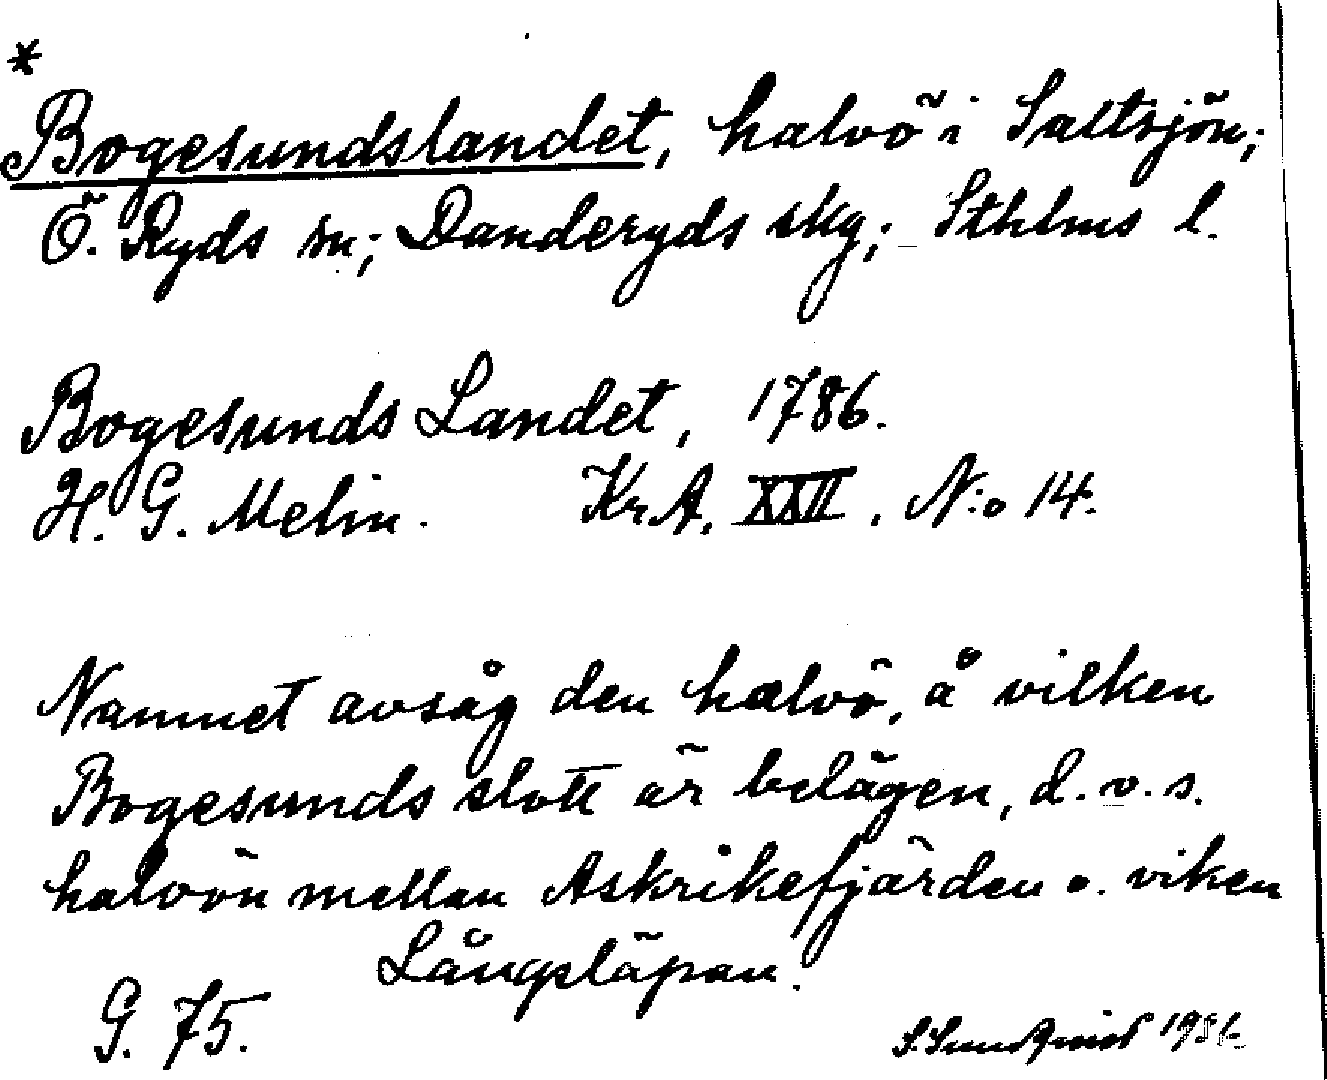 *
Bogesundslandet, halvö i Saltsjön;
Ö. Ryds sn; Danderyds skg; Sthlms l.
Bogesunds Landet, 1786.
H. G. Melin. KrA, XXII, N:o 14.
Namnet avsåg den halvö, å vilken
Bogesunds slott är belägen, d.v.s.
halvön mellan Askrikefjärden o. viken
Långsläpan.
G. 75.
S. Sundqvist